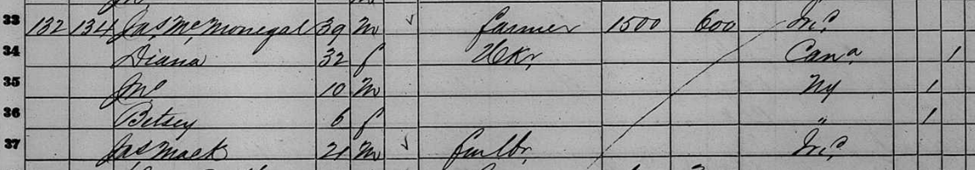 33 132 134 Jas McMonegal 39 m farmer 1500 600 Ire
34 Diana 32 f HKr Cana 1
35 Jno 10 m NY 1
36 Betsey 6 f " 1
37 Jas Mack 21 m fm lbr Ire